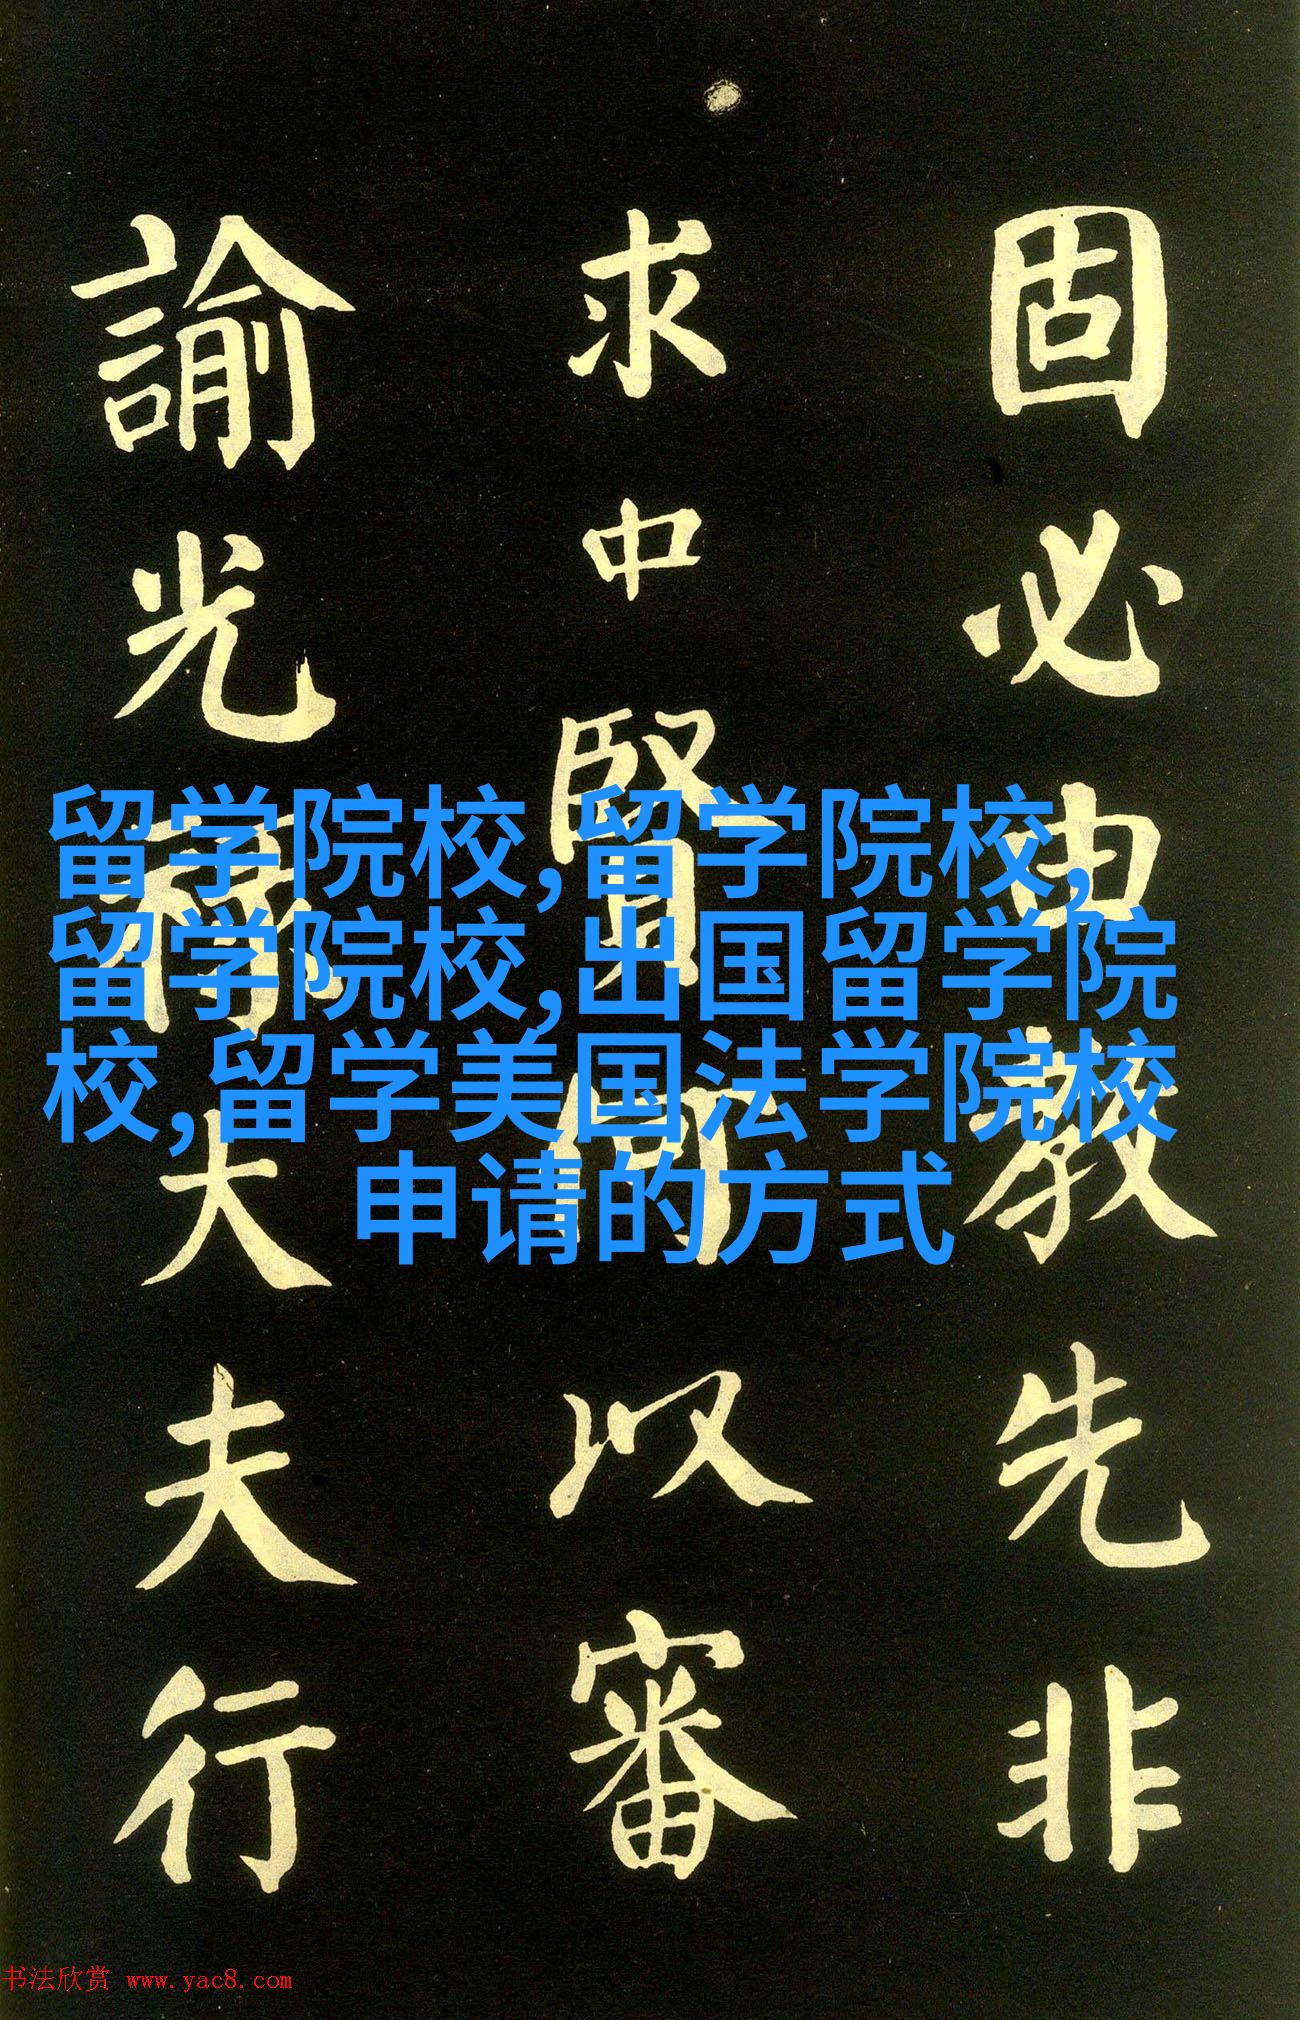 固必由教先非
求中賢何以審
諭光祿大夫行
留学院校,留学院校,
留学院校,出国留学院
校,留学美国法学院校
申请的方式
书法欣赏 www.yac8.com